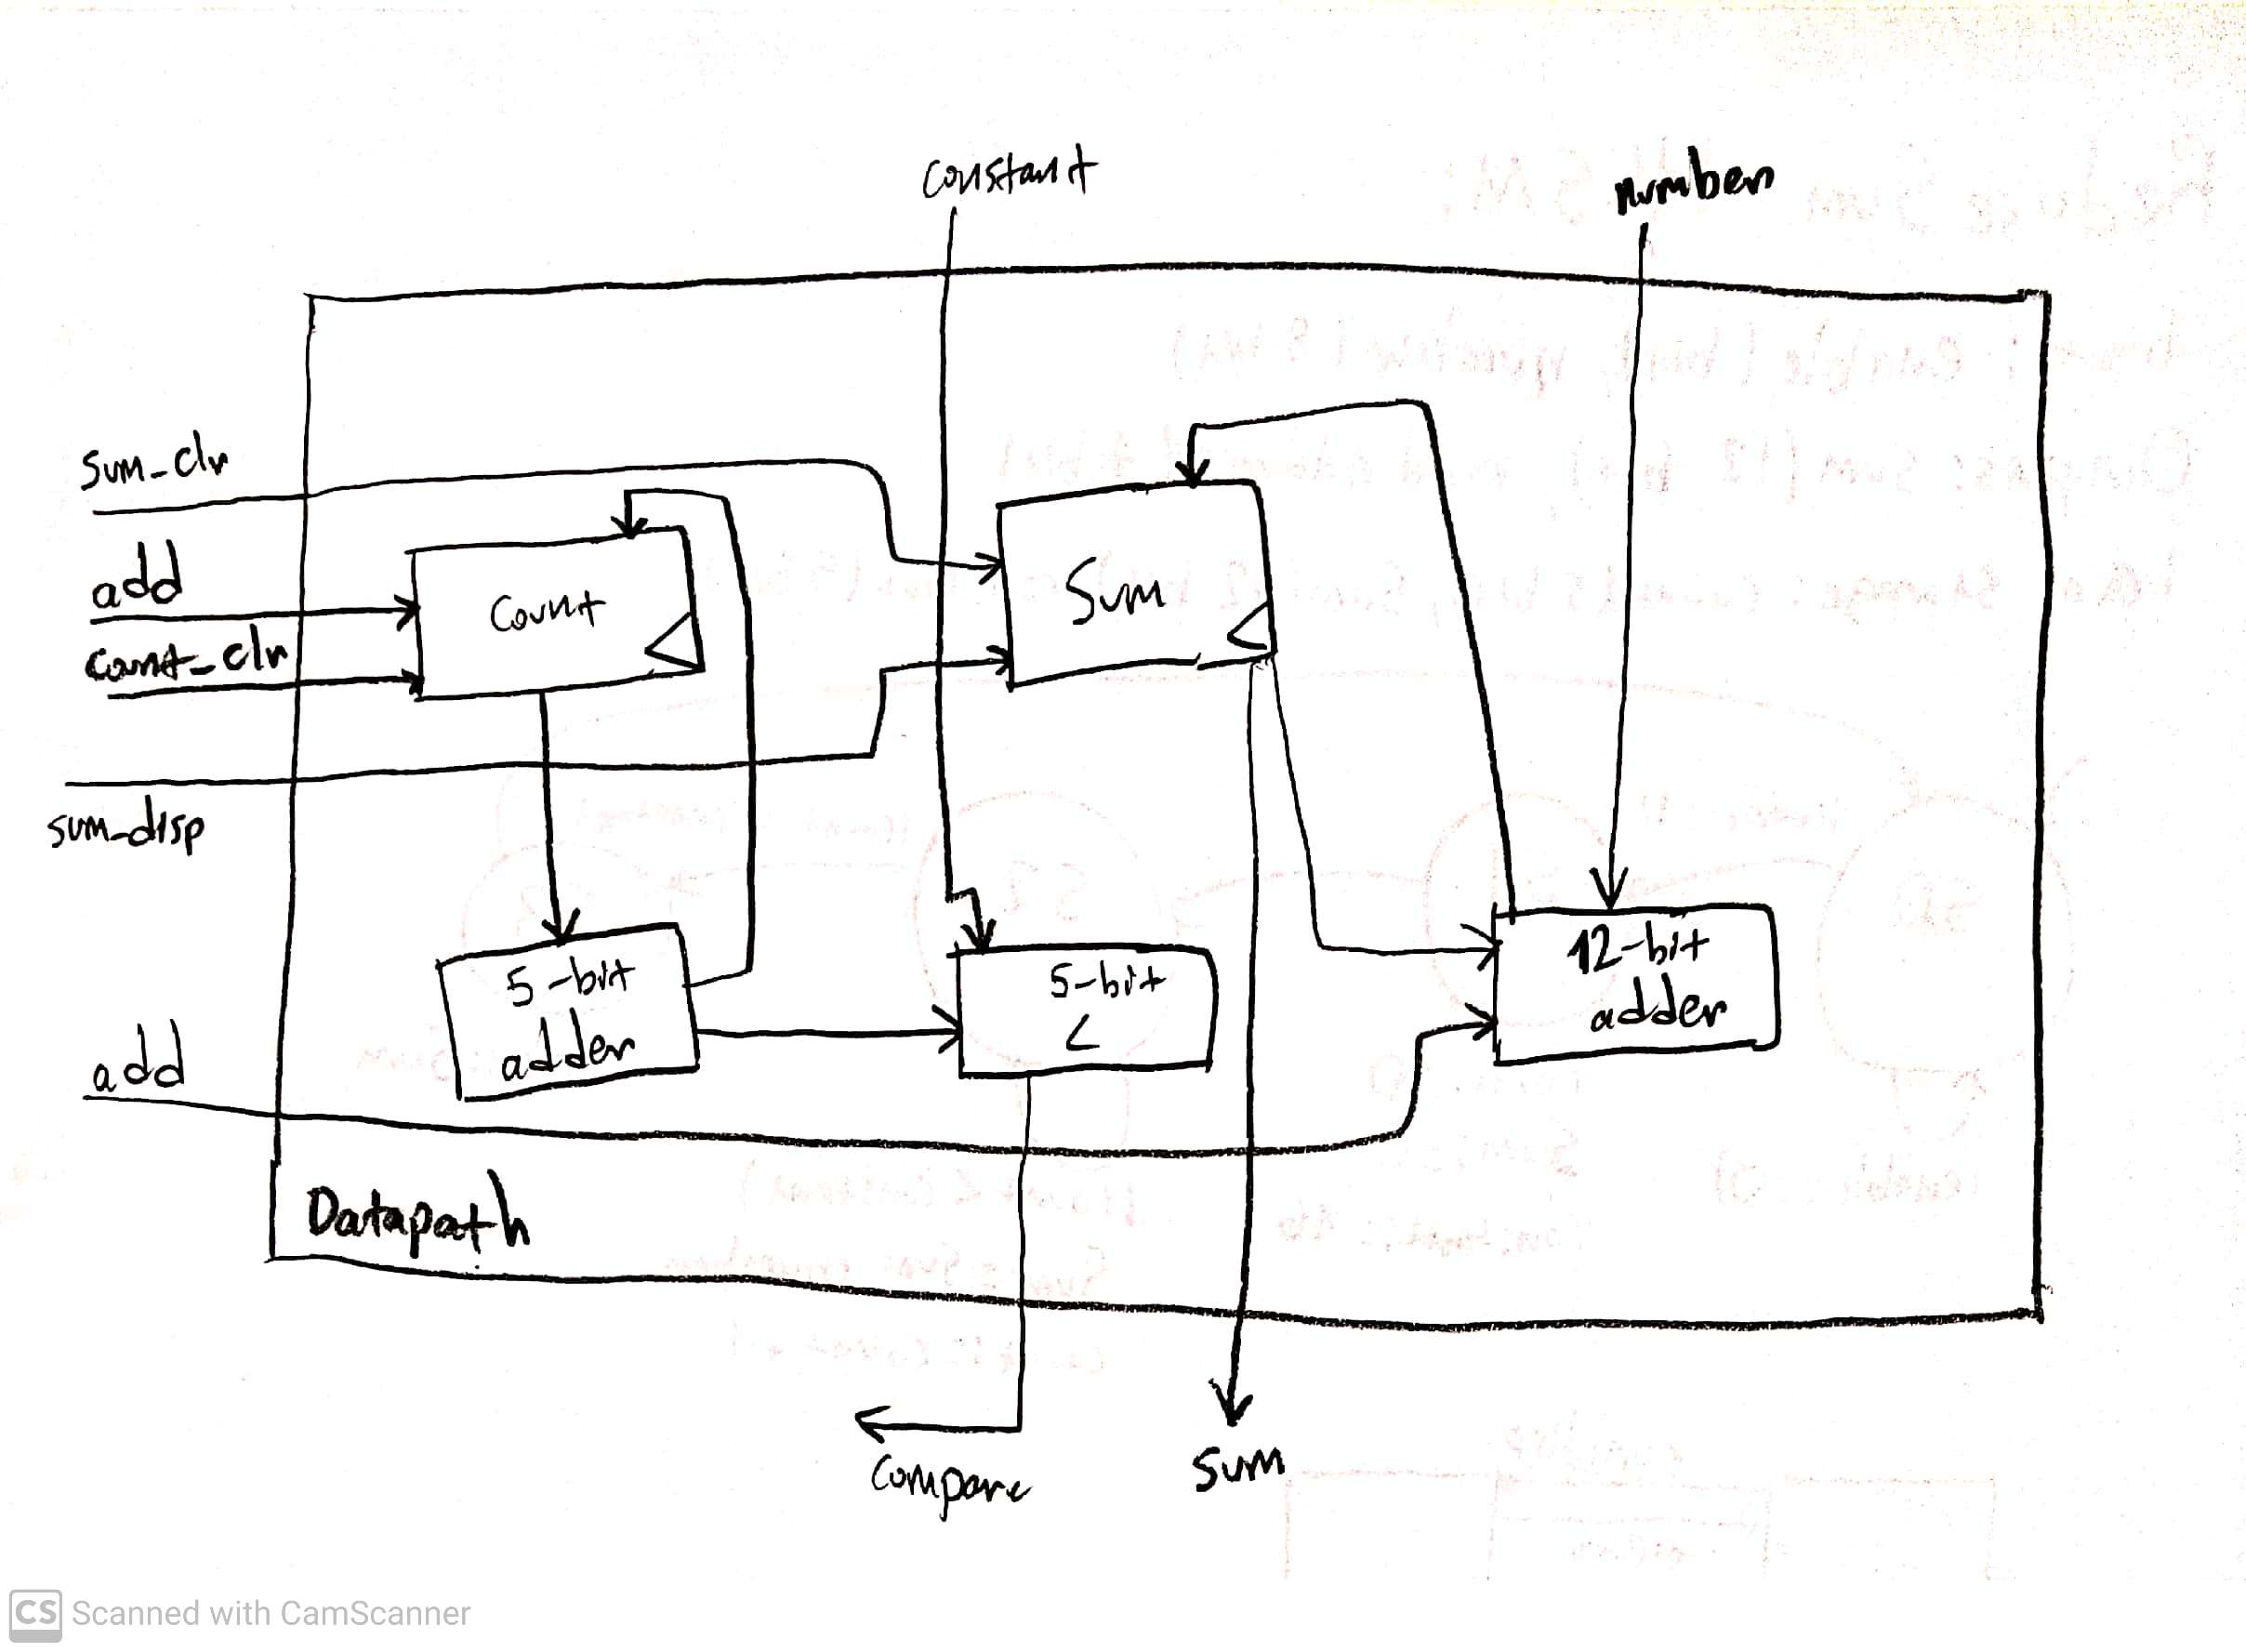 constant
number
sum_clr
add
Count
count_clr
Sum
sum_disp
5-bit
adder
5-bit
<
12-bit
adder
add
Datapath
compare
sum
CS Scanned with CamScanner